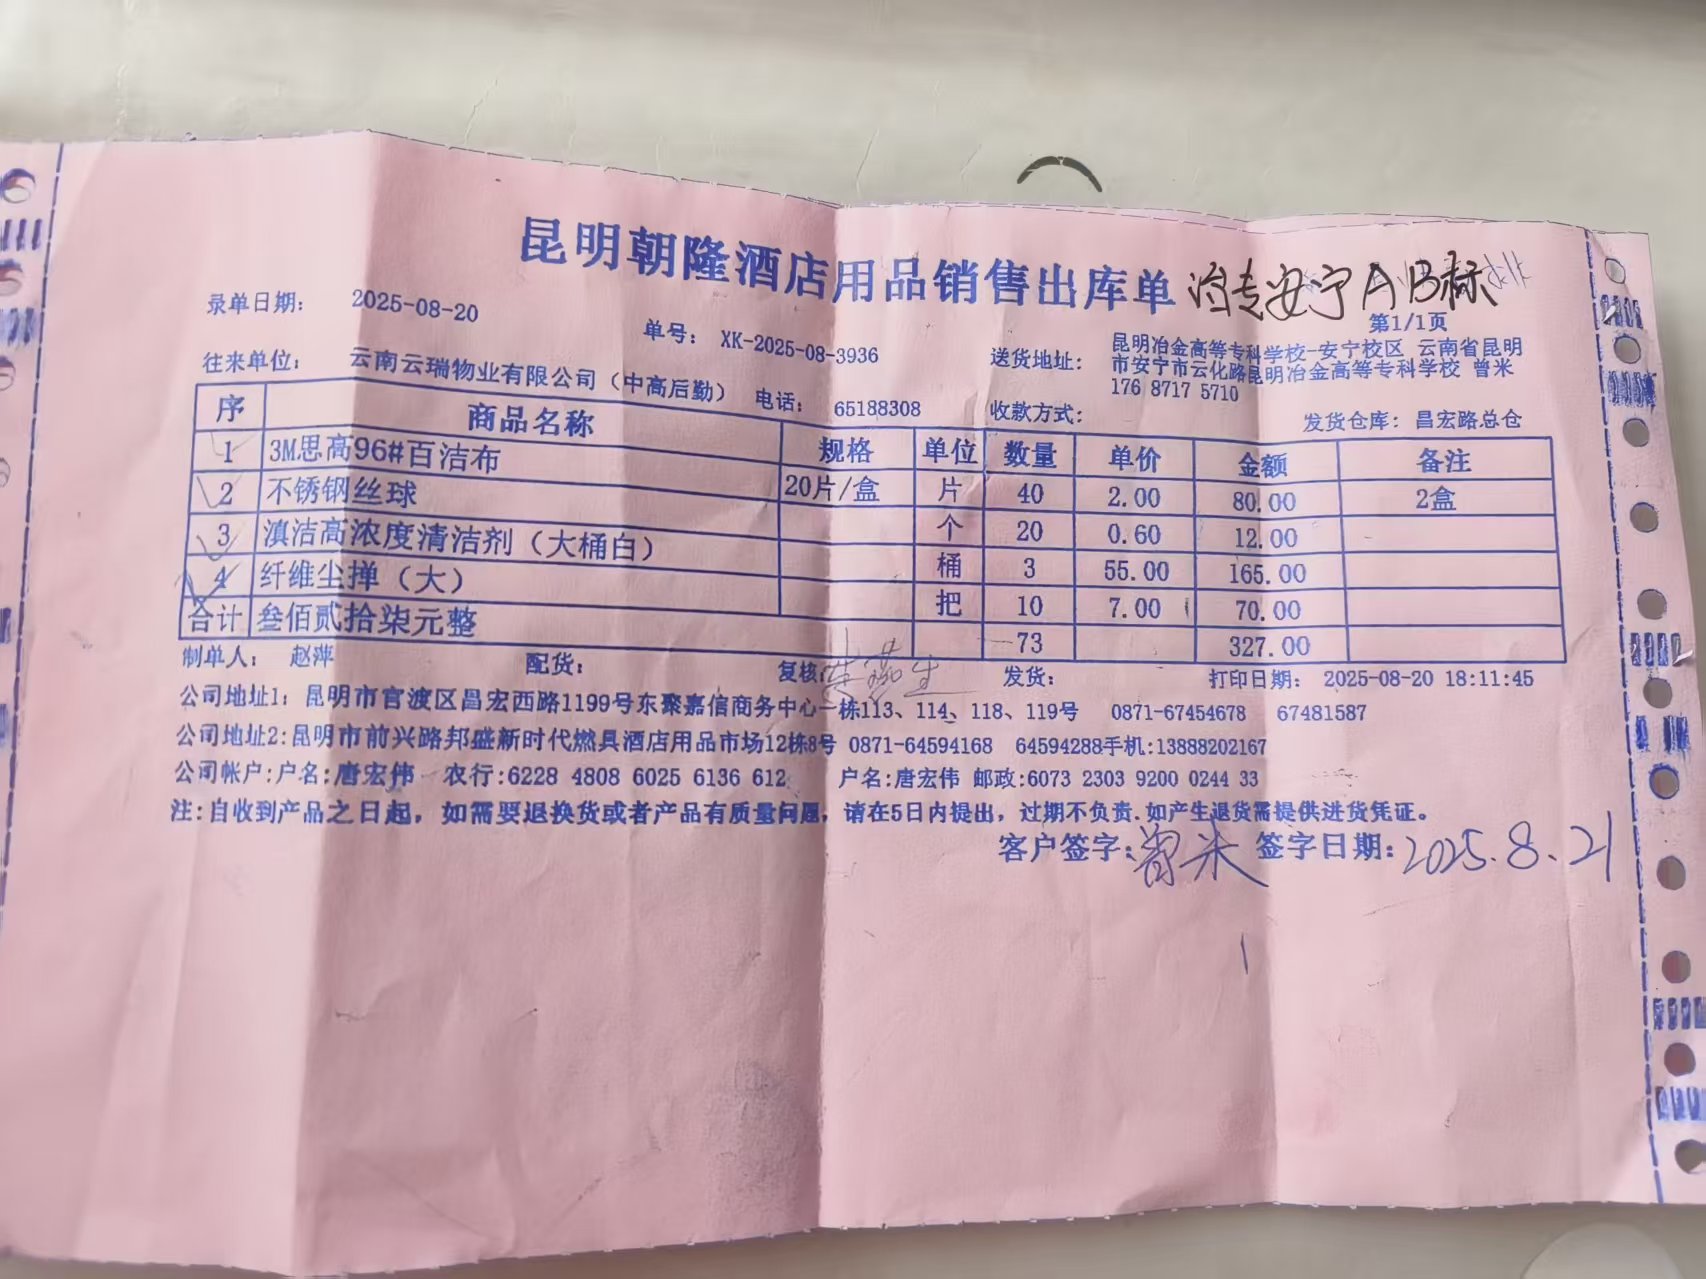 昆明朝隆酒店用品销售出库单 冶专安宁AB标
第1/1页
录单日期: 2025-08-20 单号: XK-2025-08-3936 送货地址: 昆明冶金高等专科学校-安宁校区 云南省昆明
市安宁市云化路昆明冶金高等专科学校 曾米
176 8717 5710
往来单位: 云南云瑞物业有限公司（中高后勤） 电话: 65188308 收款方式: 发货仓库: 昌宏路总仓
序 商品名称 规格 单位 数量 单价 金额 备注
1 3M思高96#百洁布 20片/盒 片 40 2.00 80.00 2盒
2 不锈钢丝球 个 20 0.60 12.00
3 滇洁高浓度清洁剂（大桶白） 桶 3 55.00 165.00
4 纤维尘掸（大） 把 10 7.00 70.00
合计 叁佰贰拾柒元整 73 327.00
制单人: 赵萍 配货: 复核: 发货: 打印日期: 2025-08-20 18:11:45
公司地址1: 昆明市官渡区昌宏西路1199号东聚嘉信商务中心一栋113、114、118、119号 0871-67454678 67481587
公司地址2:昆明市前兴路邦盛新时代燃具酒店用品市场12栋8号 0871-64594168 64594288手机:13888202167
公司帐户:户名:唐宏伟 农行:6228 4808 6025 6136 612 户名:唐宏伟 邮政:6073 2303 9200 0244 33
注:自收到产品之日起，如需要退换货或者产品有质量问题，请在5日内提出，过期不负责.如产生退货需提供进货凭证。
客户签字: 曾米 签字日期: 2025.8.21